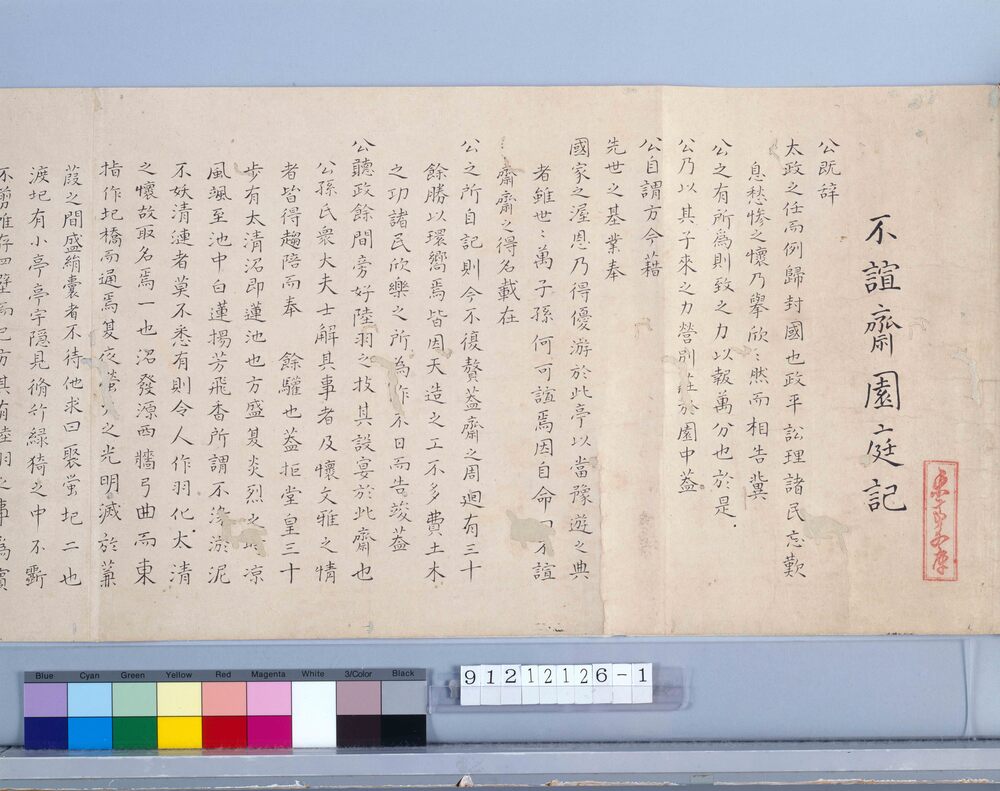 不諠齋園庭記
公既辞
太政之任而例歸封國也政平訟理諸民忘歎
息愁慘之懷乃擧欣〻然而相告冀
公之有所為則致之力以報萬分也於是
公乃以其子來之力營別莊於園中蓋
公自謂方今藉
先世之基業奉
國家之渥恩乃得優游於此亭以當豫遊之典
者雖世〻萬子孫何可諠焉因自命曰不諠
齋齋之得名載在
公之所自記則今不復贅蓋齋之周廻有三十
餘勝以環嚮焉皆因天造之工不多費土木
之功諸民欣樂之所為作不日而告竣蓋
公聽政餘間旁好陸羽之技其設宴於此齋也
公孫氏衆大夫士解其事者及懷文雅之情
者皆得趨陪而奉 餘驩也蓋拒堂皇三十
步有太清沼即蓮池也方盛夏炎烈之 涼
風颯至池中白蓮揚芳飛香所謂不 淤泥
不妖清漣者莫不悉有則令人作羽化太清
之懷故取名焉一也沼發源西牆弓曲而東
指作圯橋而通焉夏夜螢火之光明滅於蒹
葭之間盛絹囊者不待他求曰聚螢圯二也
渡圯有小亭亭宇隱見脩竹綠猗之中不斲
不剪惟存四壁而已方其有陸羽之事為賓
Blue Cyan Green Yellow Red Magenta White 3/Color Black
91212126-1